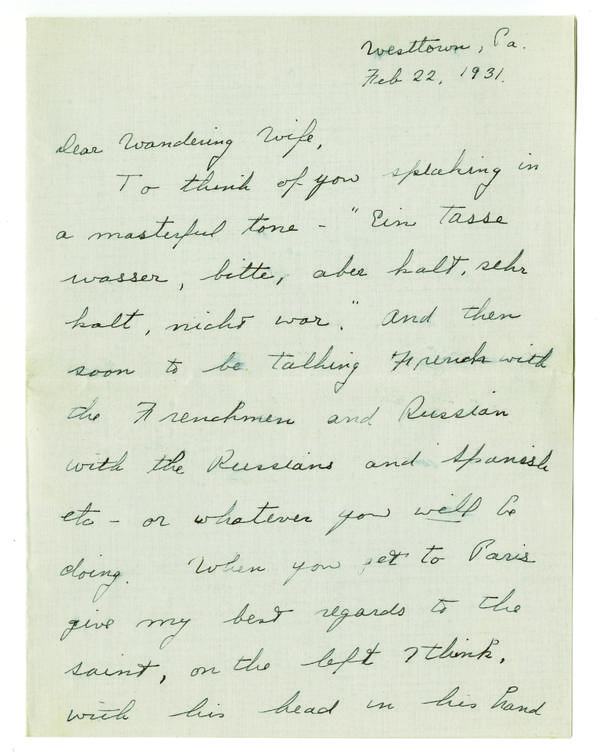 Westtown, Pa.
Feb 22, 1931.
Dear Wandering Wife,
To think of you speaking in
a masterful tone - "Ein Tasse
wasser, bitte, aber kalt, sehr
kalt, nicht war." And then
soon to be talking French with
the Frenchmen and Russian
with the Russians and Spanish
etc - or whatever you will be
doing. When you get to Paris
give my best regards to the
saint, on the left I think,
with his head in his hand